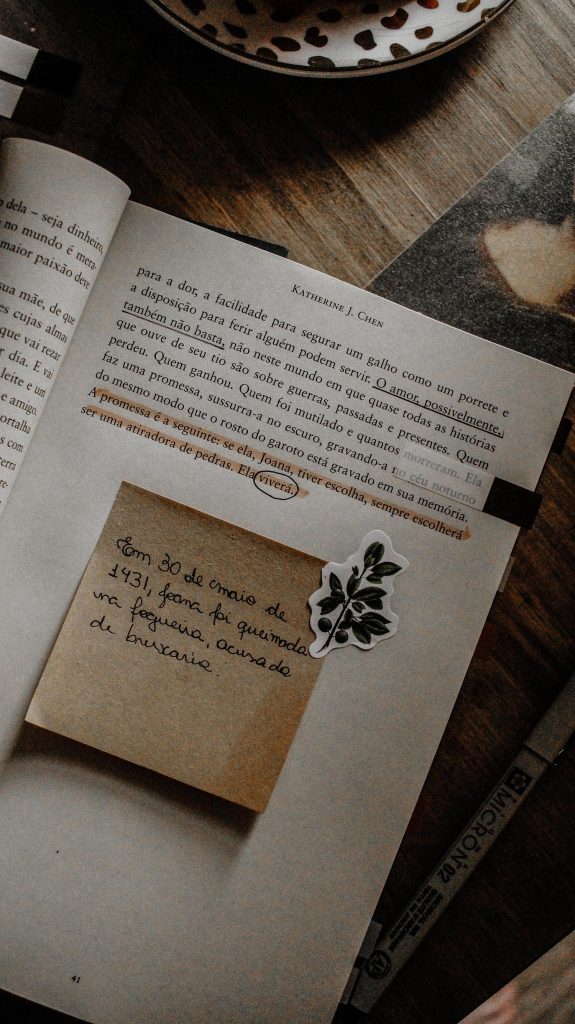 dela – seja dinheiro,
no mundo é mera-
maior paixão deve
sua mãe, de que
es cujas almas
que vai rezar
r dia. E vai
leite e um
e amigo.
ortalha
s com
Terra
KATHERINE J. CHEN
para a dor, a facilidade para segurar um galho como um porrete e
a disposição para ferir alguém podem servir. O amor, possivelmente,
também não basta, não neste mundo em que quase todas as histórias
que ouve de seu tio são sobre guerras, passadas e presentes. Quem
perdeu. Quem ganhou. Quem foi mutilado e quantos morreram. Ela
faz uma promessa, sussurra-a no escuro, gravando-a no céu noturno
do mesmo modo que o rosto do garoto está gravado em sua memória.
A promessa é a seguinte: se ela, Joana, tiver escolha, sempre escolherá
ser uma atiradora de pedras. Ela viverá.
Em 30 de maio de
1431, Joana foi queimada
na fogueira, acusada
de bruxaria.
41
MICRON 02
AP